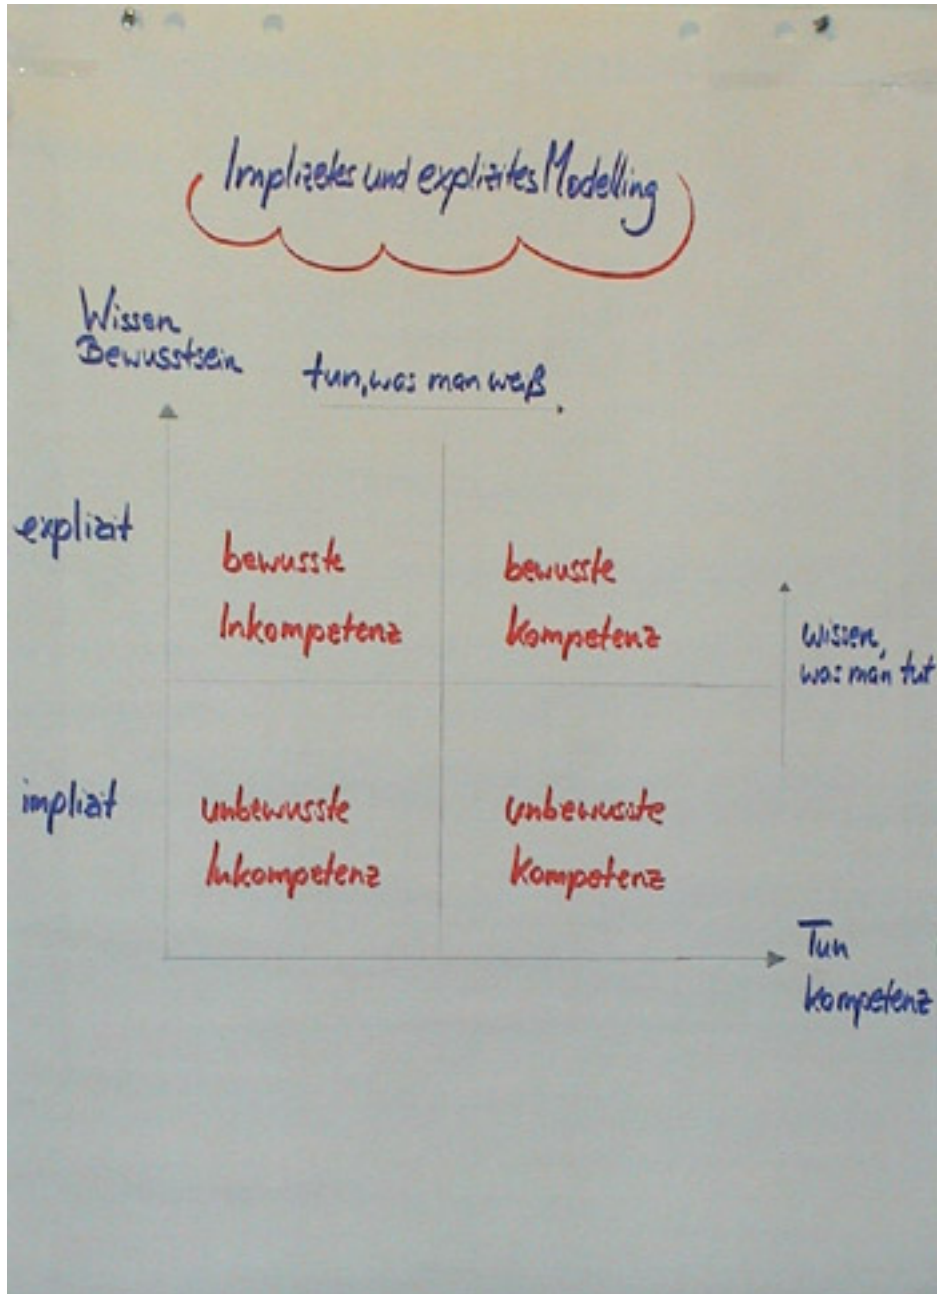 Implizetes und explizites Modelling
Wissen
Bewusstsein
tun, was man weiß
explizit
bewusste
Inkompetenz
bewusste
Kompetenz
wissen,
was man tut
implizit
unbewusste
Inkompetenz
unbewusste
Kompetenz
Tun
Kompetenz